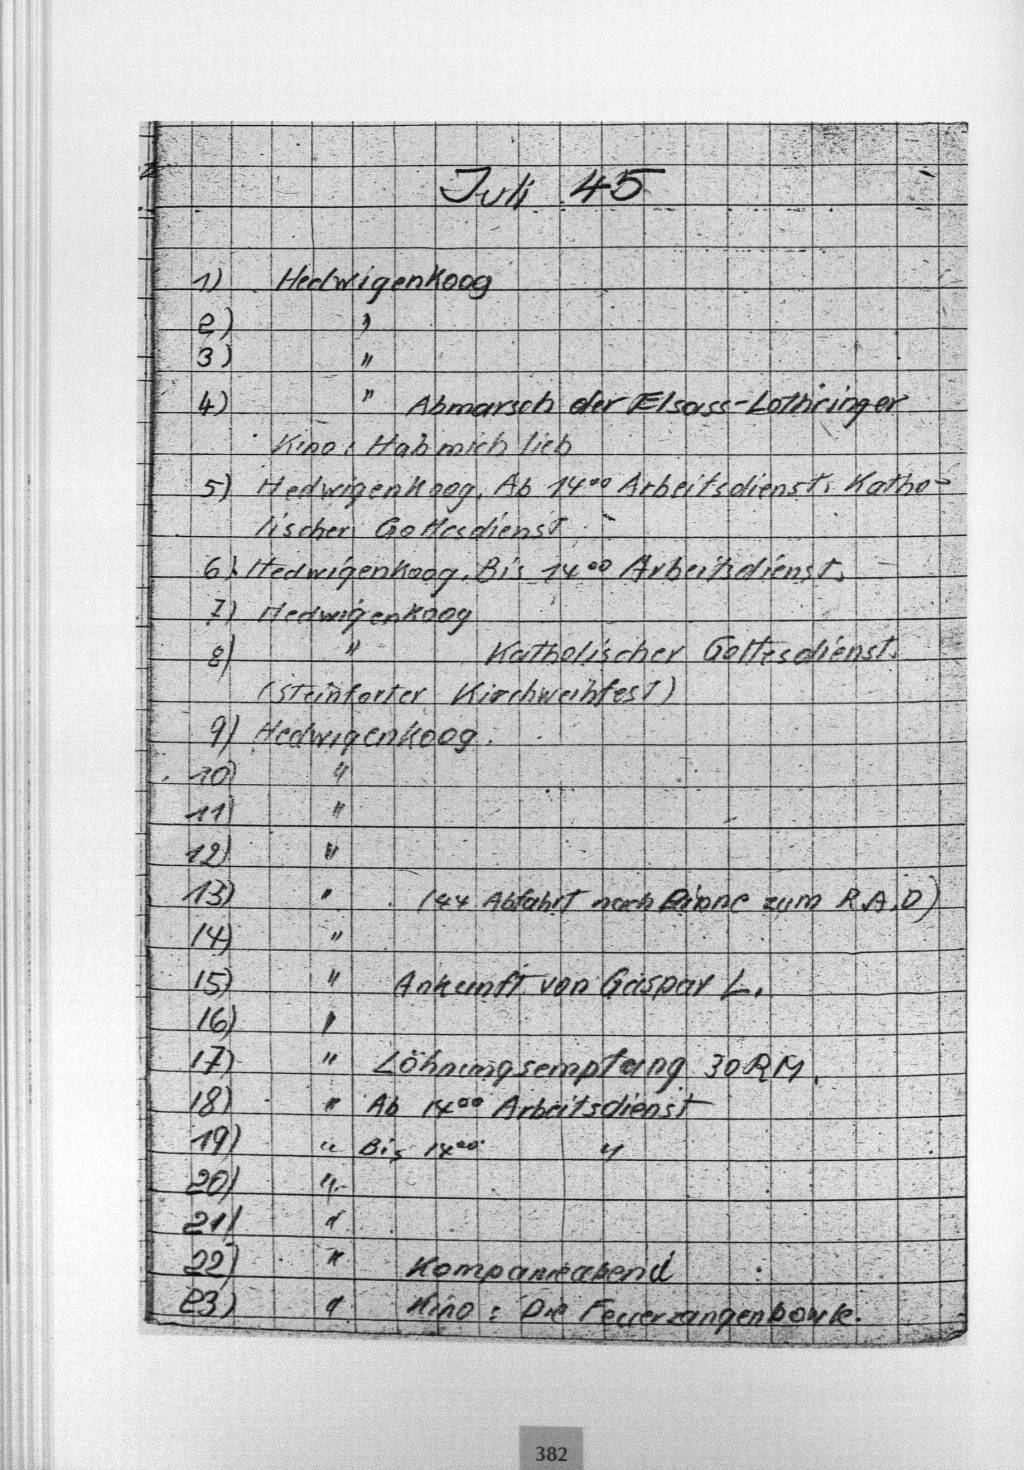 Juli 45
1) Hedwigenkoog
2) "
3) "
4) " Abmarsch der Elsass-Lothringer
Kino: Hab mich lieb
5) Hedwigenkoog. Ab 14⁰⁰ Arbeitsdienst. Katho-
lischer Gottesdienst
6) Hedwigenkoog. Bis 14⁰⁰ Arbeitsdienst.
7) Hedwigenkoog
8) " Katholischer Gottesdienst.
(Steinforter Kirchweihfest)
9) Hedwigenkoog.
10) "
11) "
12) "
13) " (44 Abfahrt nach zum R.A.D)
14) "
15) " Ankunft von Gaspar L.
16) "
17) " Löhnungsempfang 30 RM.
18) " Ab 14⁰⁰ Arbeitsdienst
19) " Bis 14⁰⁰ "
20) "
21) "
22) " Kompanieabend
23) " Kino: Die Feuerzangenbowle.
382